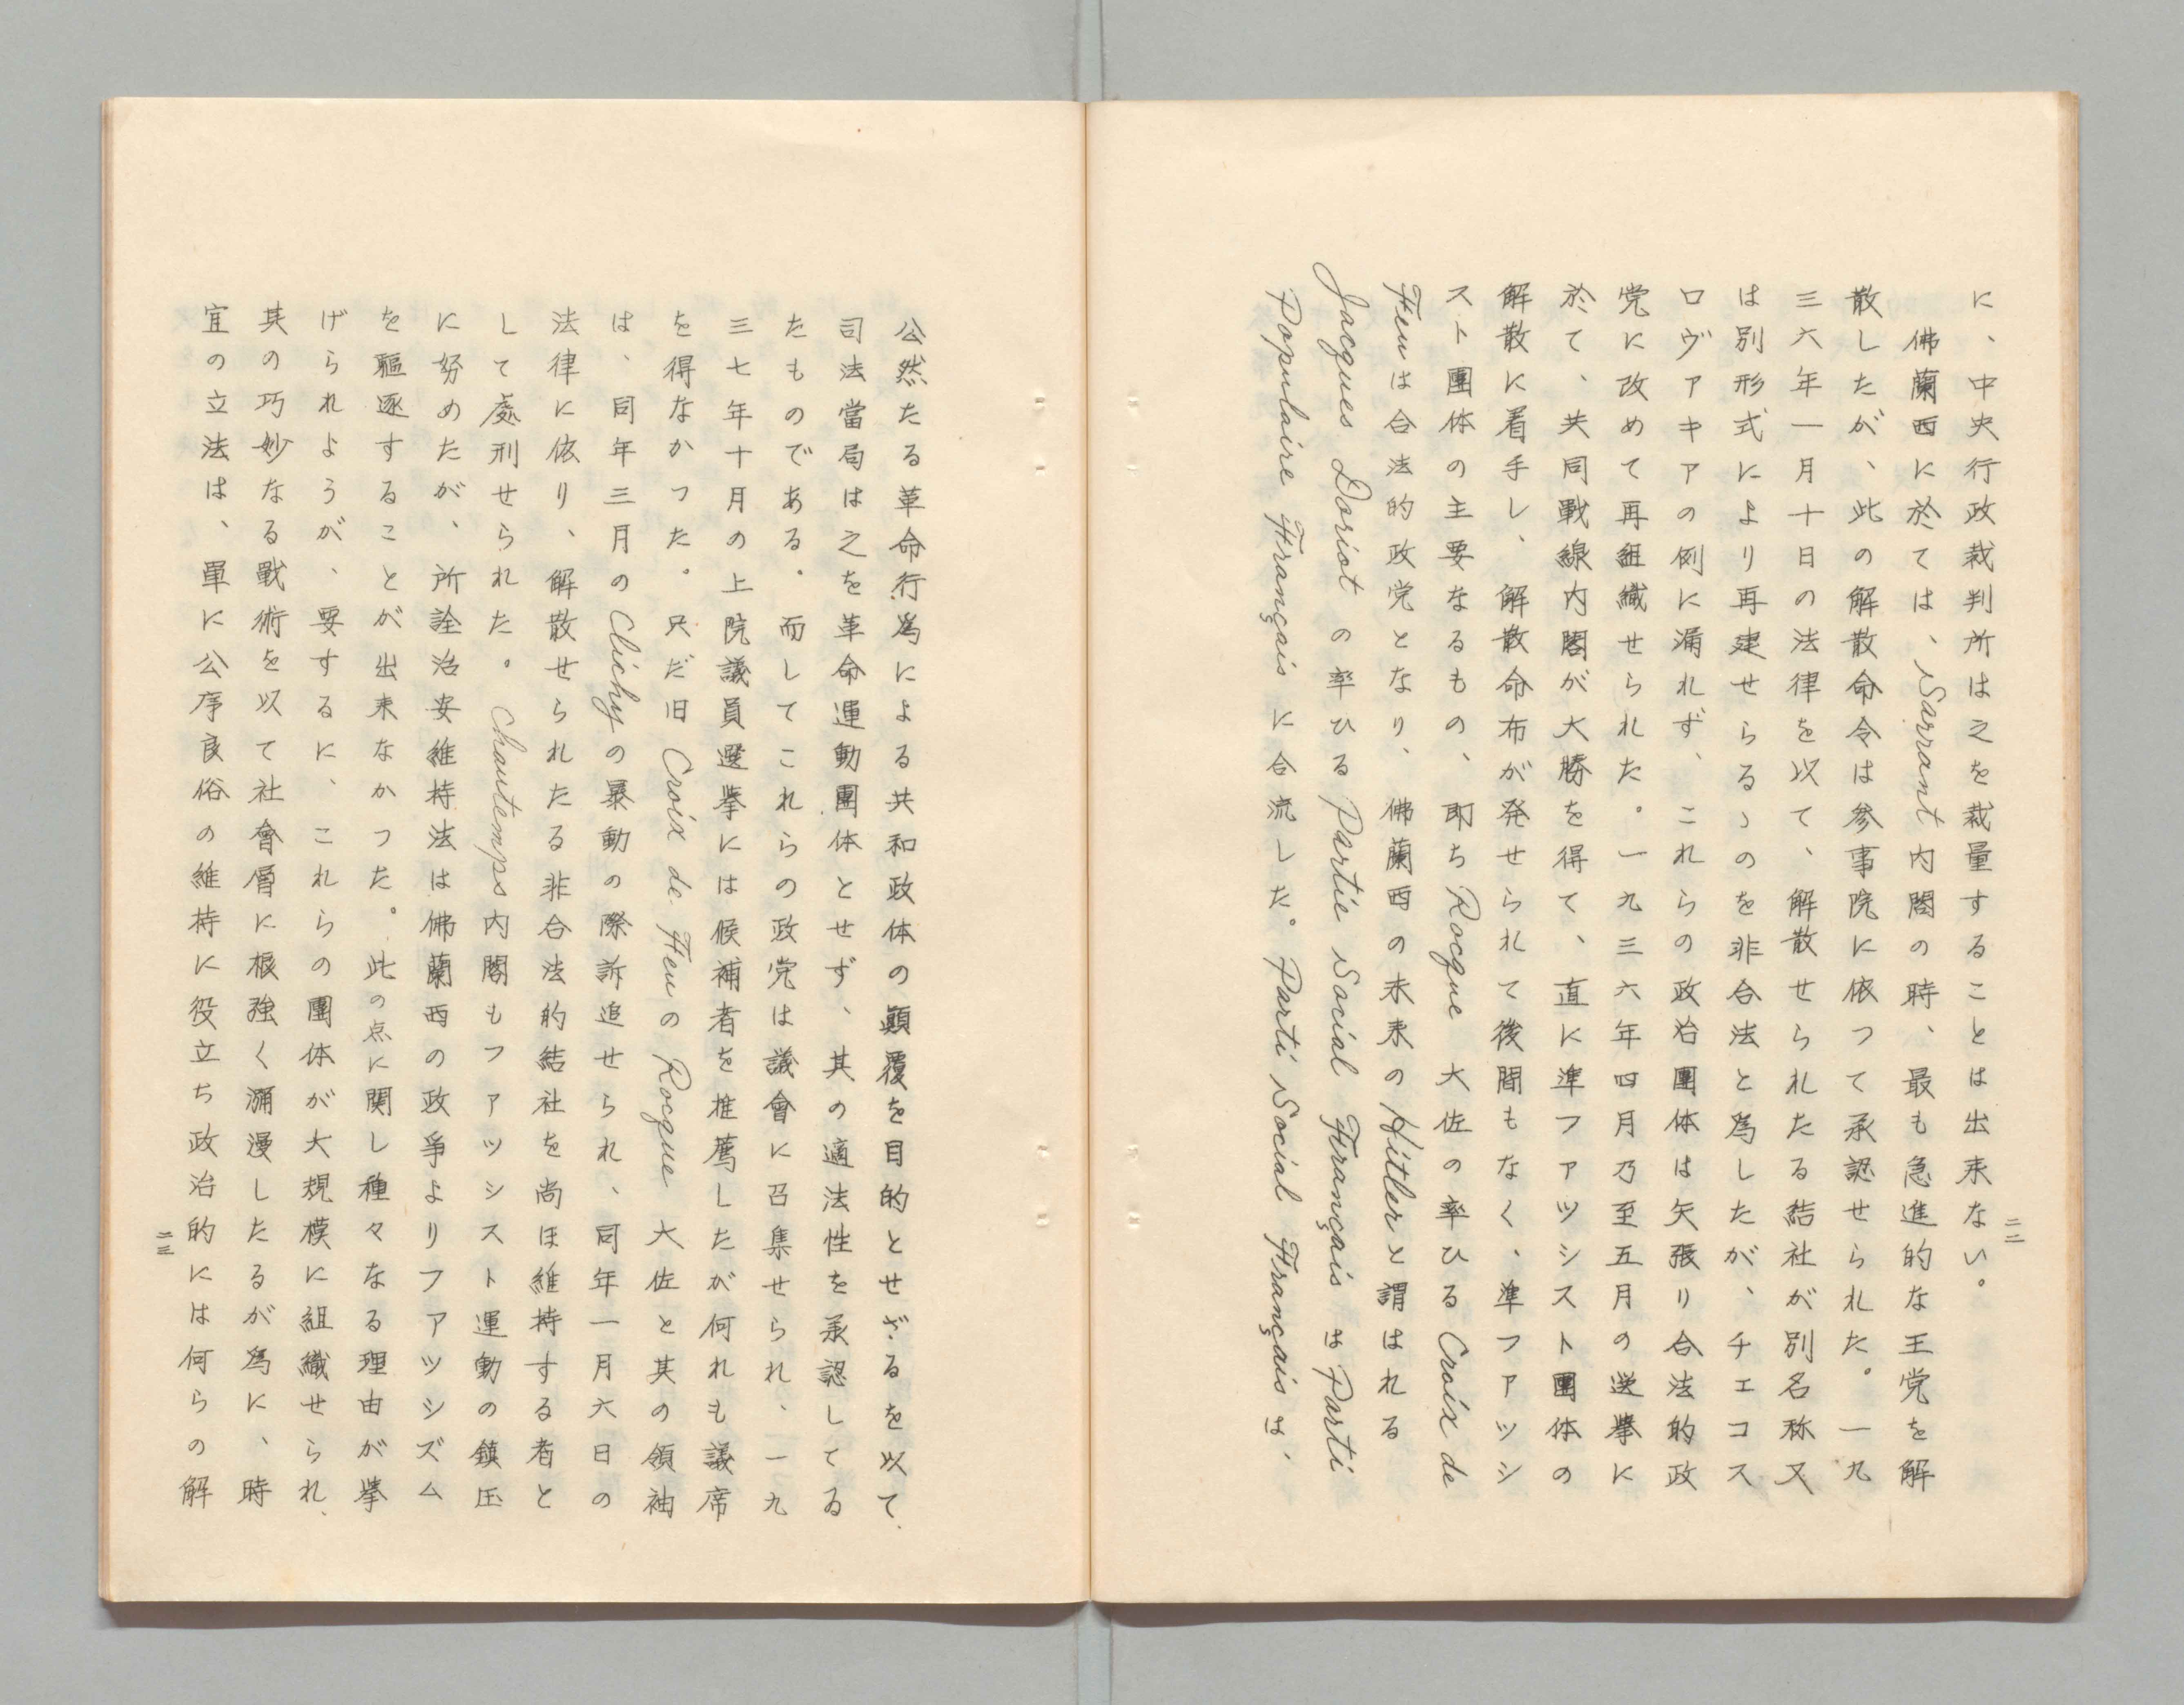 に、中央行政裁判所は之を裁量することは出来ない。
佛蘭西に於ては、Sarrant内閣の時、最も急進的な王党を解
散したが、此の解散命令は参事院に依つて承認せられた。一九
三六年一月十日の法律を以て、解散せられたる結社が別名称又
は別形式により再建せらるゝのを非合法と為したが、チェコス
ロヴアキアの例に漏れず、これらの政治團体は矢張り合法的政
党に改めて再組織せられた。一九三六年四月乃至五月の選挙に
於て、共同戰線内閣が大勝を得て、直に準フアツシスト團体の
解散に着手し、解散命布が発せられて後間もなく、準フアツシ
スト團体の主要なるもの、即ちRocque大佐の率ひるCroix de
Feuは合法的政党となり、佛蘭西の未来のHitlerと謂はれる
Jacques Doriotの率ひるPartie Social FrançaisはParti
Populaire Françaisに合流した。Parti Social Françaisは、
二二
公然たる革命行為による共和政体の顚覆を目的とせざるを以て、
司法當局は之を革命運動團体とせず、其の適法性を承認してゐ
たものである。而してこれらの政党は議會に召集せられ、一九
三七年十月の上院議員選挙には候補者を推薦したが何れも議席
を得なかつた。只だ旧Croix de FeuのRocque大佐と其の領袖
は、同年三月のClichyの暴動の際訴追せられ、同年一月六日の
法律に依り、解散せられたる非合法的結社を尚ほ維持する者と
して處刑せられた。Chautemps内閣もフアツシスト運動の鎮圧
に努めたが、所詮治安維持法は佛蘭西の政爭よりフアツシズム
を驅逐することが出来なかつた。此の点に関し種々なる理由が挙
げられようが、要するに、これらの團体が大規模に組織せられ、
其の巧妙なる戰術を以て社會層に根強く瀰漫したるが為に、時
宜の立法は、單に公序良俗の維持に役立ち政治的には何らの解
二三